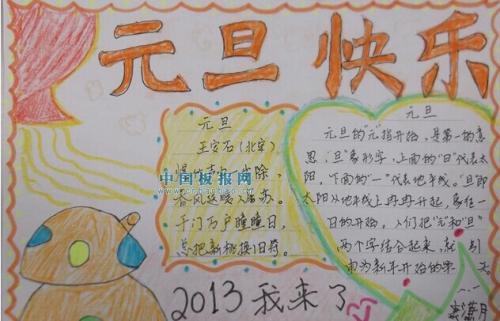 元旦快乐
元旦
王安石(北宋)
爆竹声中一岁除,
春风送暖入屠苏。
千门万户曈曈日,
总把新桃换旧符。
元旦
元旦的"元"指开始,是第一的意
思,"旦"象形字,上面的"日"代表太
阳,下面的"一"代表地平线。"旦"即
太阳从地平线上冉冉升起,象征一
日的开始。人们把"元"和"旦"
两个字结合起来,就
为新年开始的第 天
2013 我来了
中国板报网